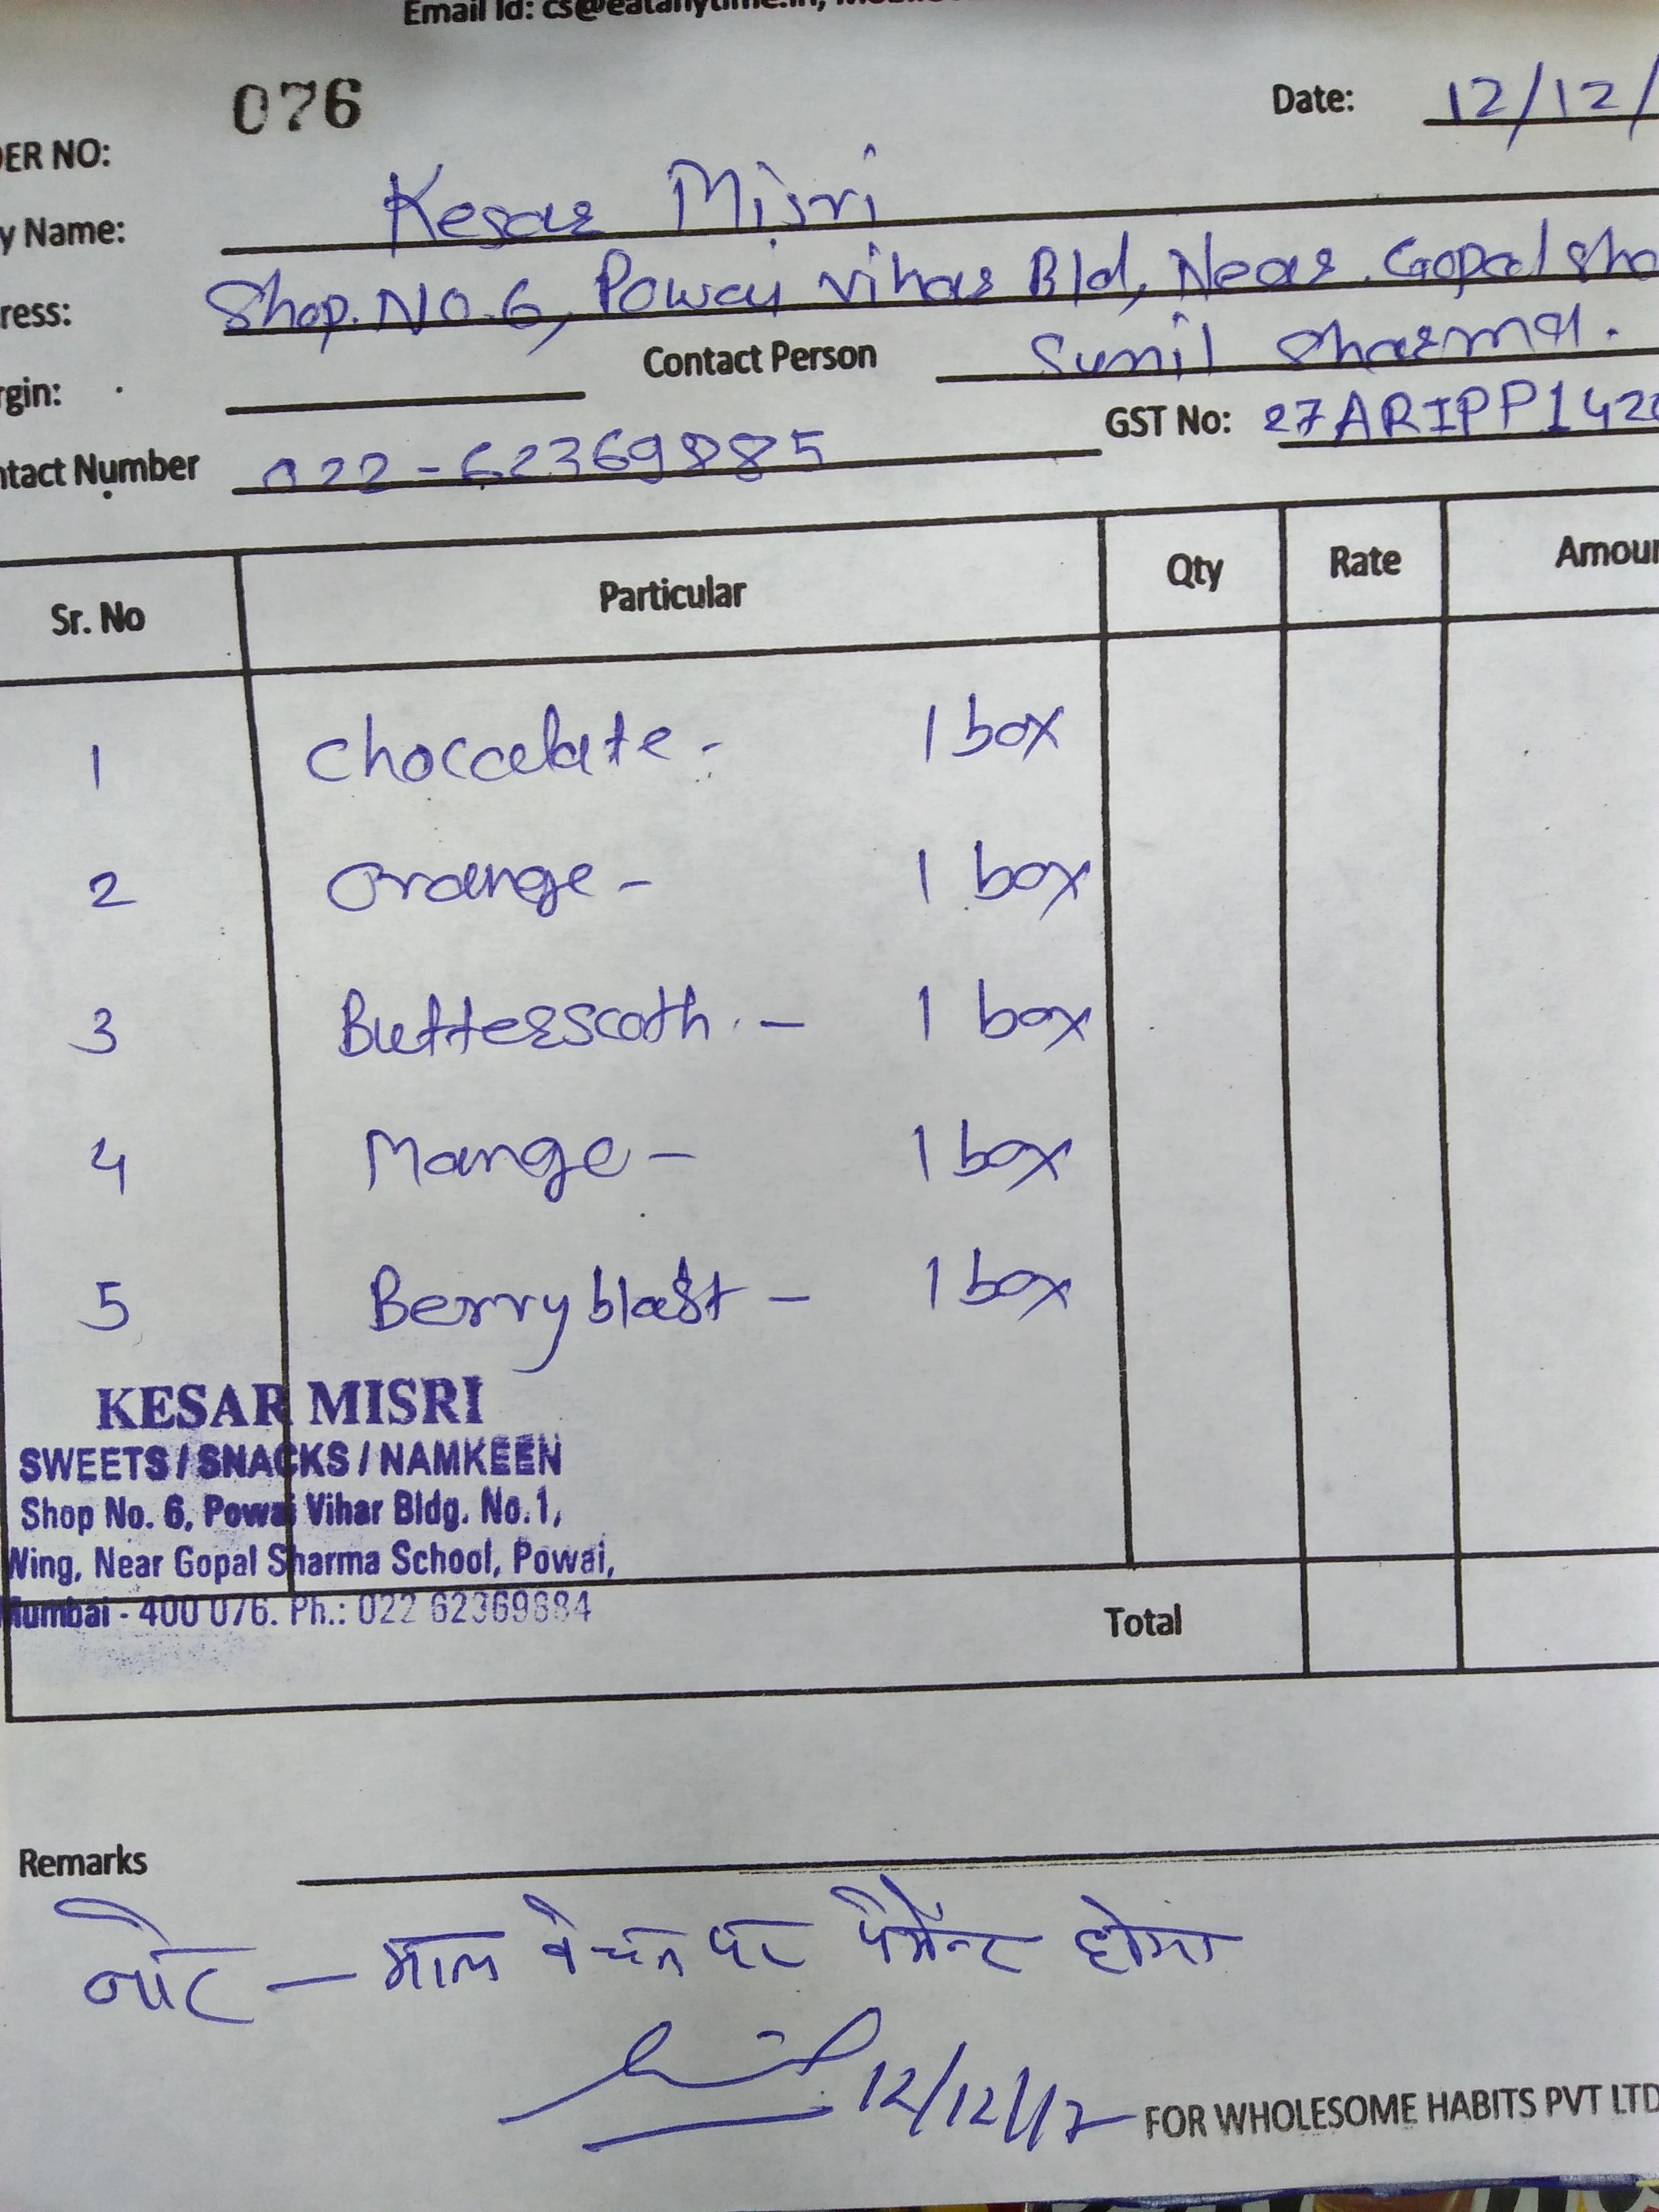 Email Id: cs@eatanytime.in,
076
Date: 12/12/
ER NO:
y Name: Kesar Misri
ress: Shop. No. 6, Powai vihar Bld, Near. Gopal sha
rgin: Contact Person Sunil Sharma.
ntact Number 022-62369885 GST No: 27ARIPP142
Sr. No Particular Qty Rate Amou
1 Choccelate - 1 box
2 Orange - 1 box
3 Butterscoth. - 1 box
4 Mango - 1 box
5 Berry blast - 1 box
KESAR MISRI
SWEETS / SNACKS / NAMKEEN
Shop No. 6, Powai Vihar Bldg. No.1,
Wing, Near Gopal Sharma School, Powai,
Mumbai - 400 076. Ph.: 022 62369884
Total
Remarks
नोट - माल बेचन पर पेमेन्ट होगा
12/12/17
FOR WHOLESOME HABITS PVT LTD